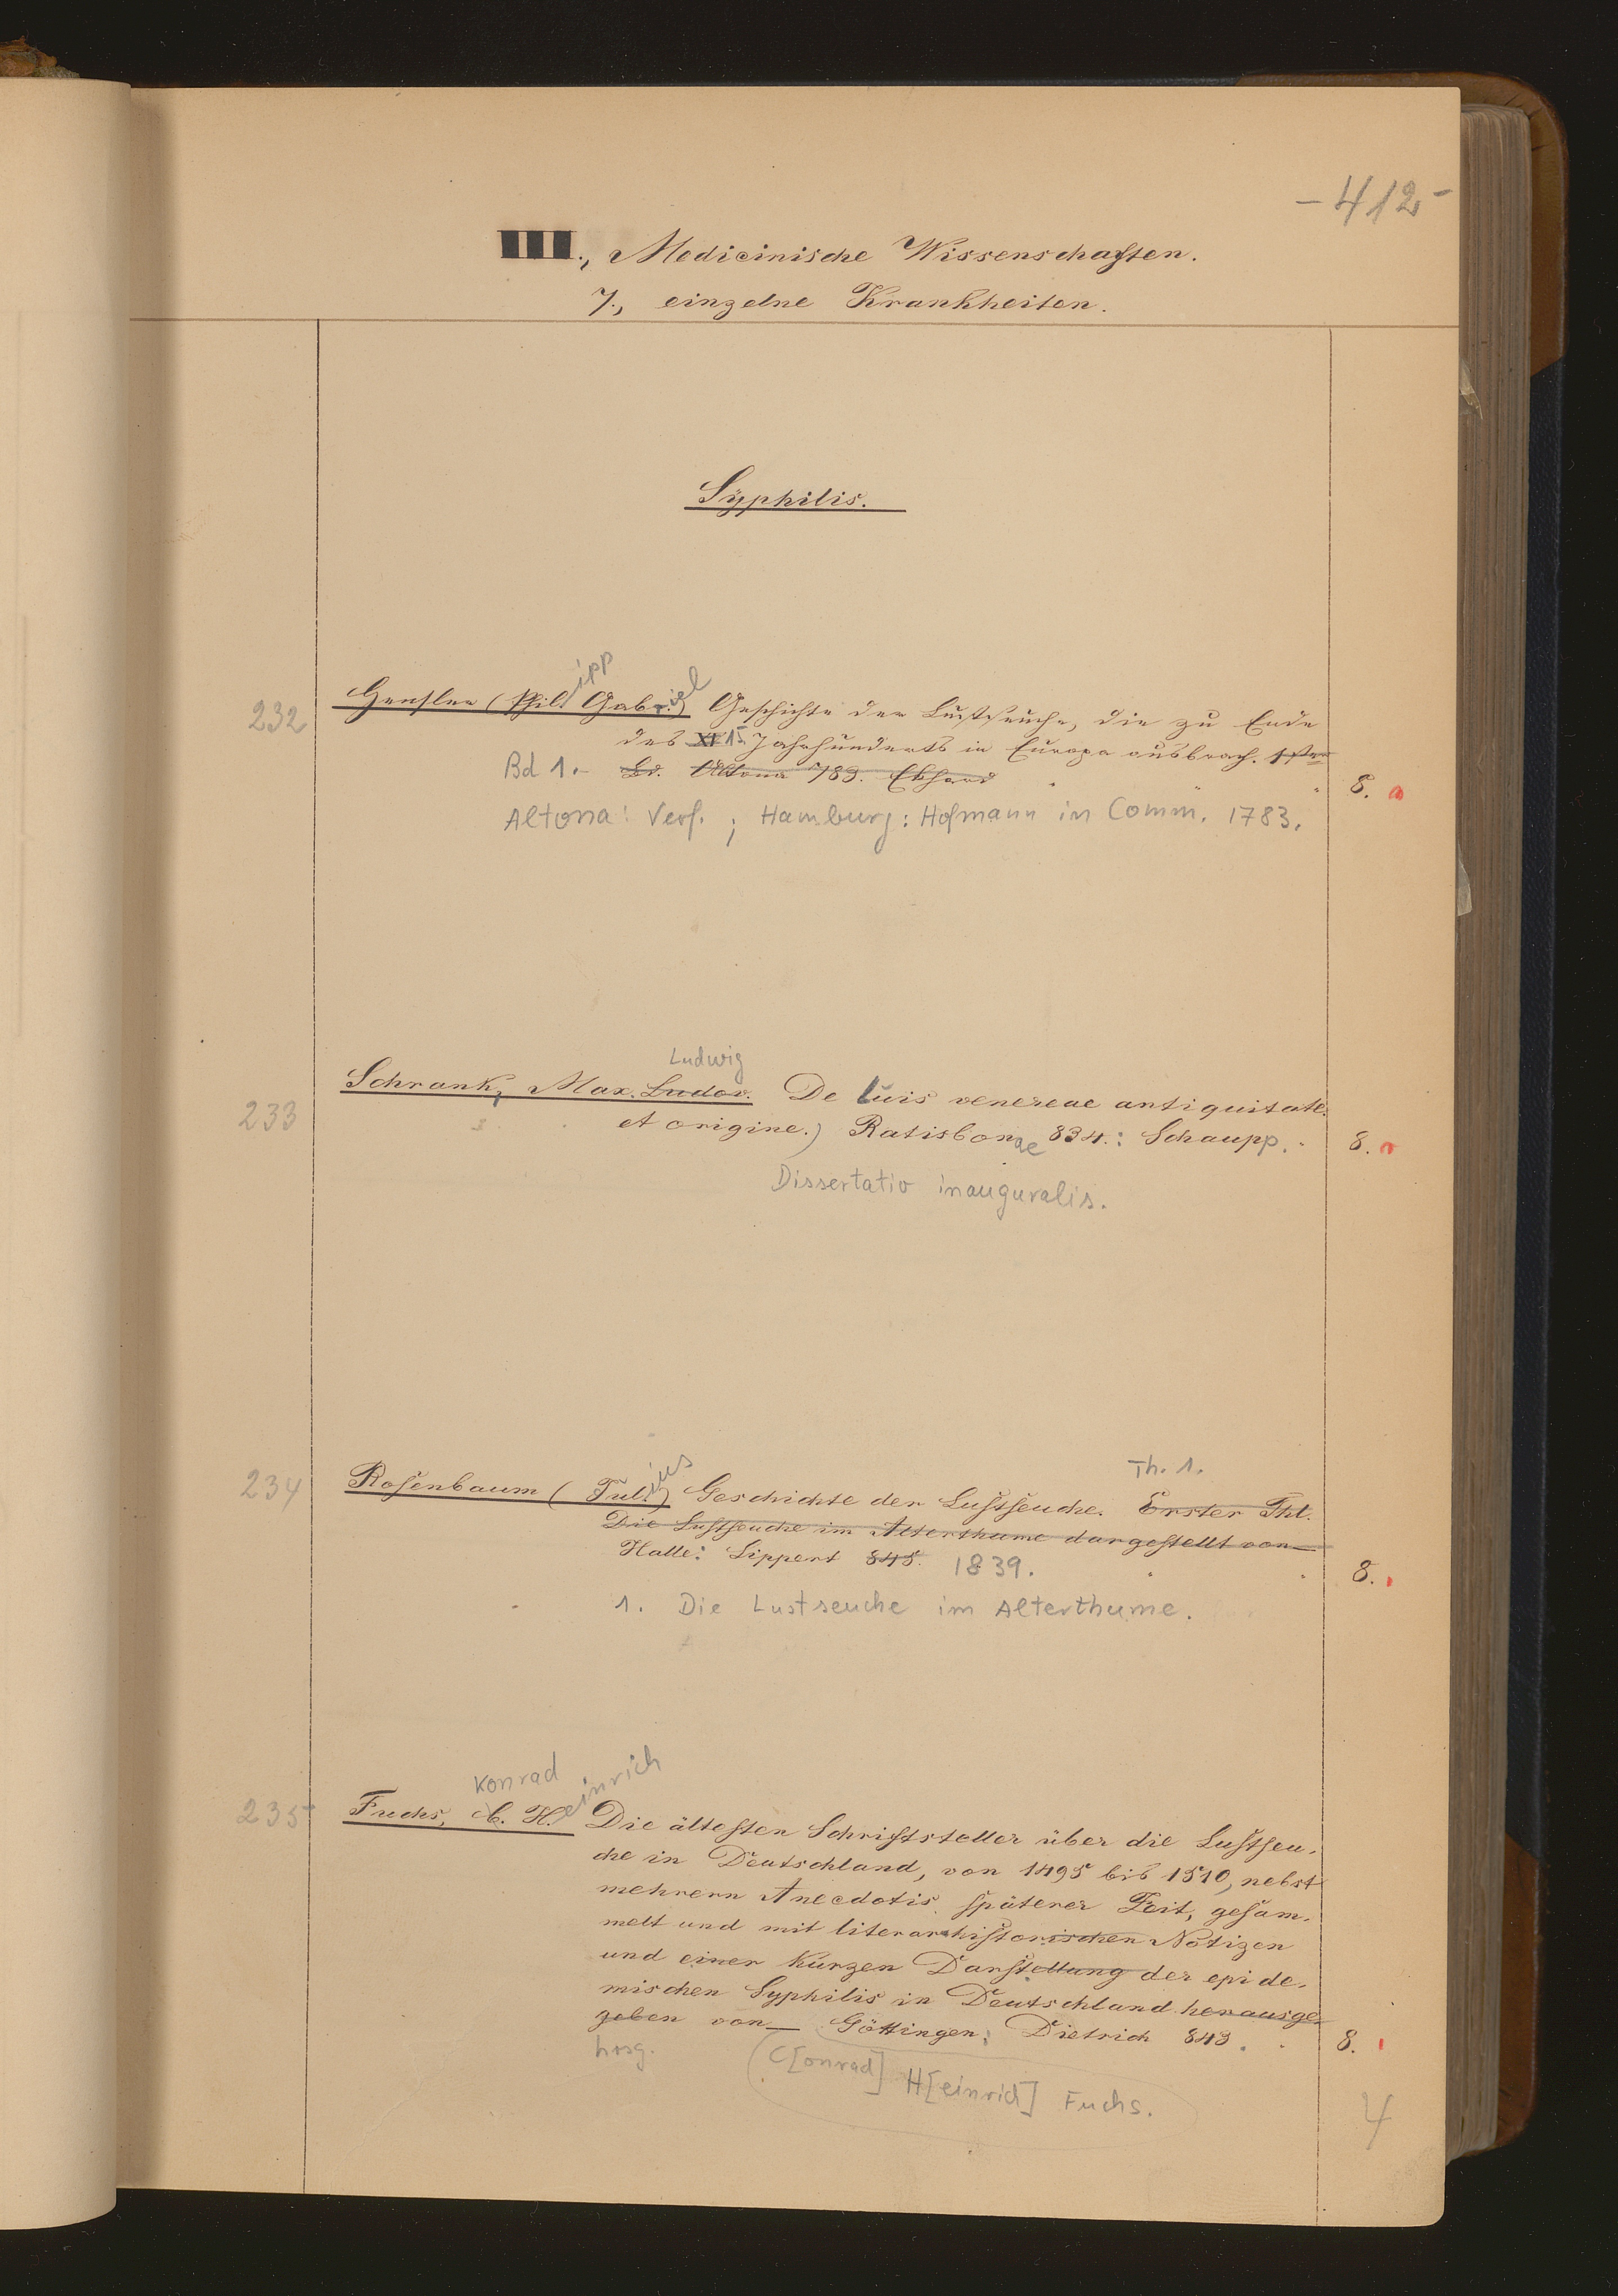 - 412 -
III., Medicinische Wissenschaften.
7., einzelne Krankheiten.
Syphilis.
ipp iel
232 Hensler (Phil. Gabr.) Geschichte der Lustseuche, die zu Ende
des XV 15. Jahrhunderts in Europa ausbrach. 1ster
Bd 1.- Bd. Altona 789. Ebhard 8.
Altona: Verf. ; Hamburg: Hofmann in Comm. 1783.
Ludwig
233 Schrank, Max. Ludov. De luis venereae antiquitate
et origine.) Ratisbonae 834.: Schaupp. 8.
Dissertatio inauguralis.
ius Th. 1.
234 Rosenbaum (Jul.) Geschichte der Lustseuche. Erster Thl.
Die Lustseuche im Alterthume dargestellt von
Halle: Lippert 845. 1839. 8.
1. Die Lustseuche im Alterthume.
Konrad einrich
235 Fuchs, C. H. Die ältesten Schriftsteller über die Lustseu-
che in Deutschland, von 1495 bis 1510, nebst
mehrern Anecdotis späterer Zeit, gesam-
melt und mit literarhistorischen Notizen
und einer kurzen Darstellung der epide-
mischen Syphilis in Deutschland herausge-
geben von Göttingen: Dietrich 843. 8.
hrsg. C[onrad] H[einrich] Fuchs.
4